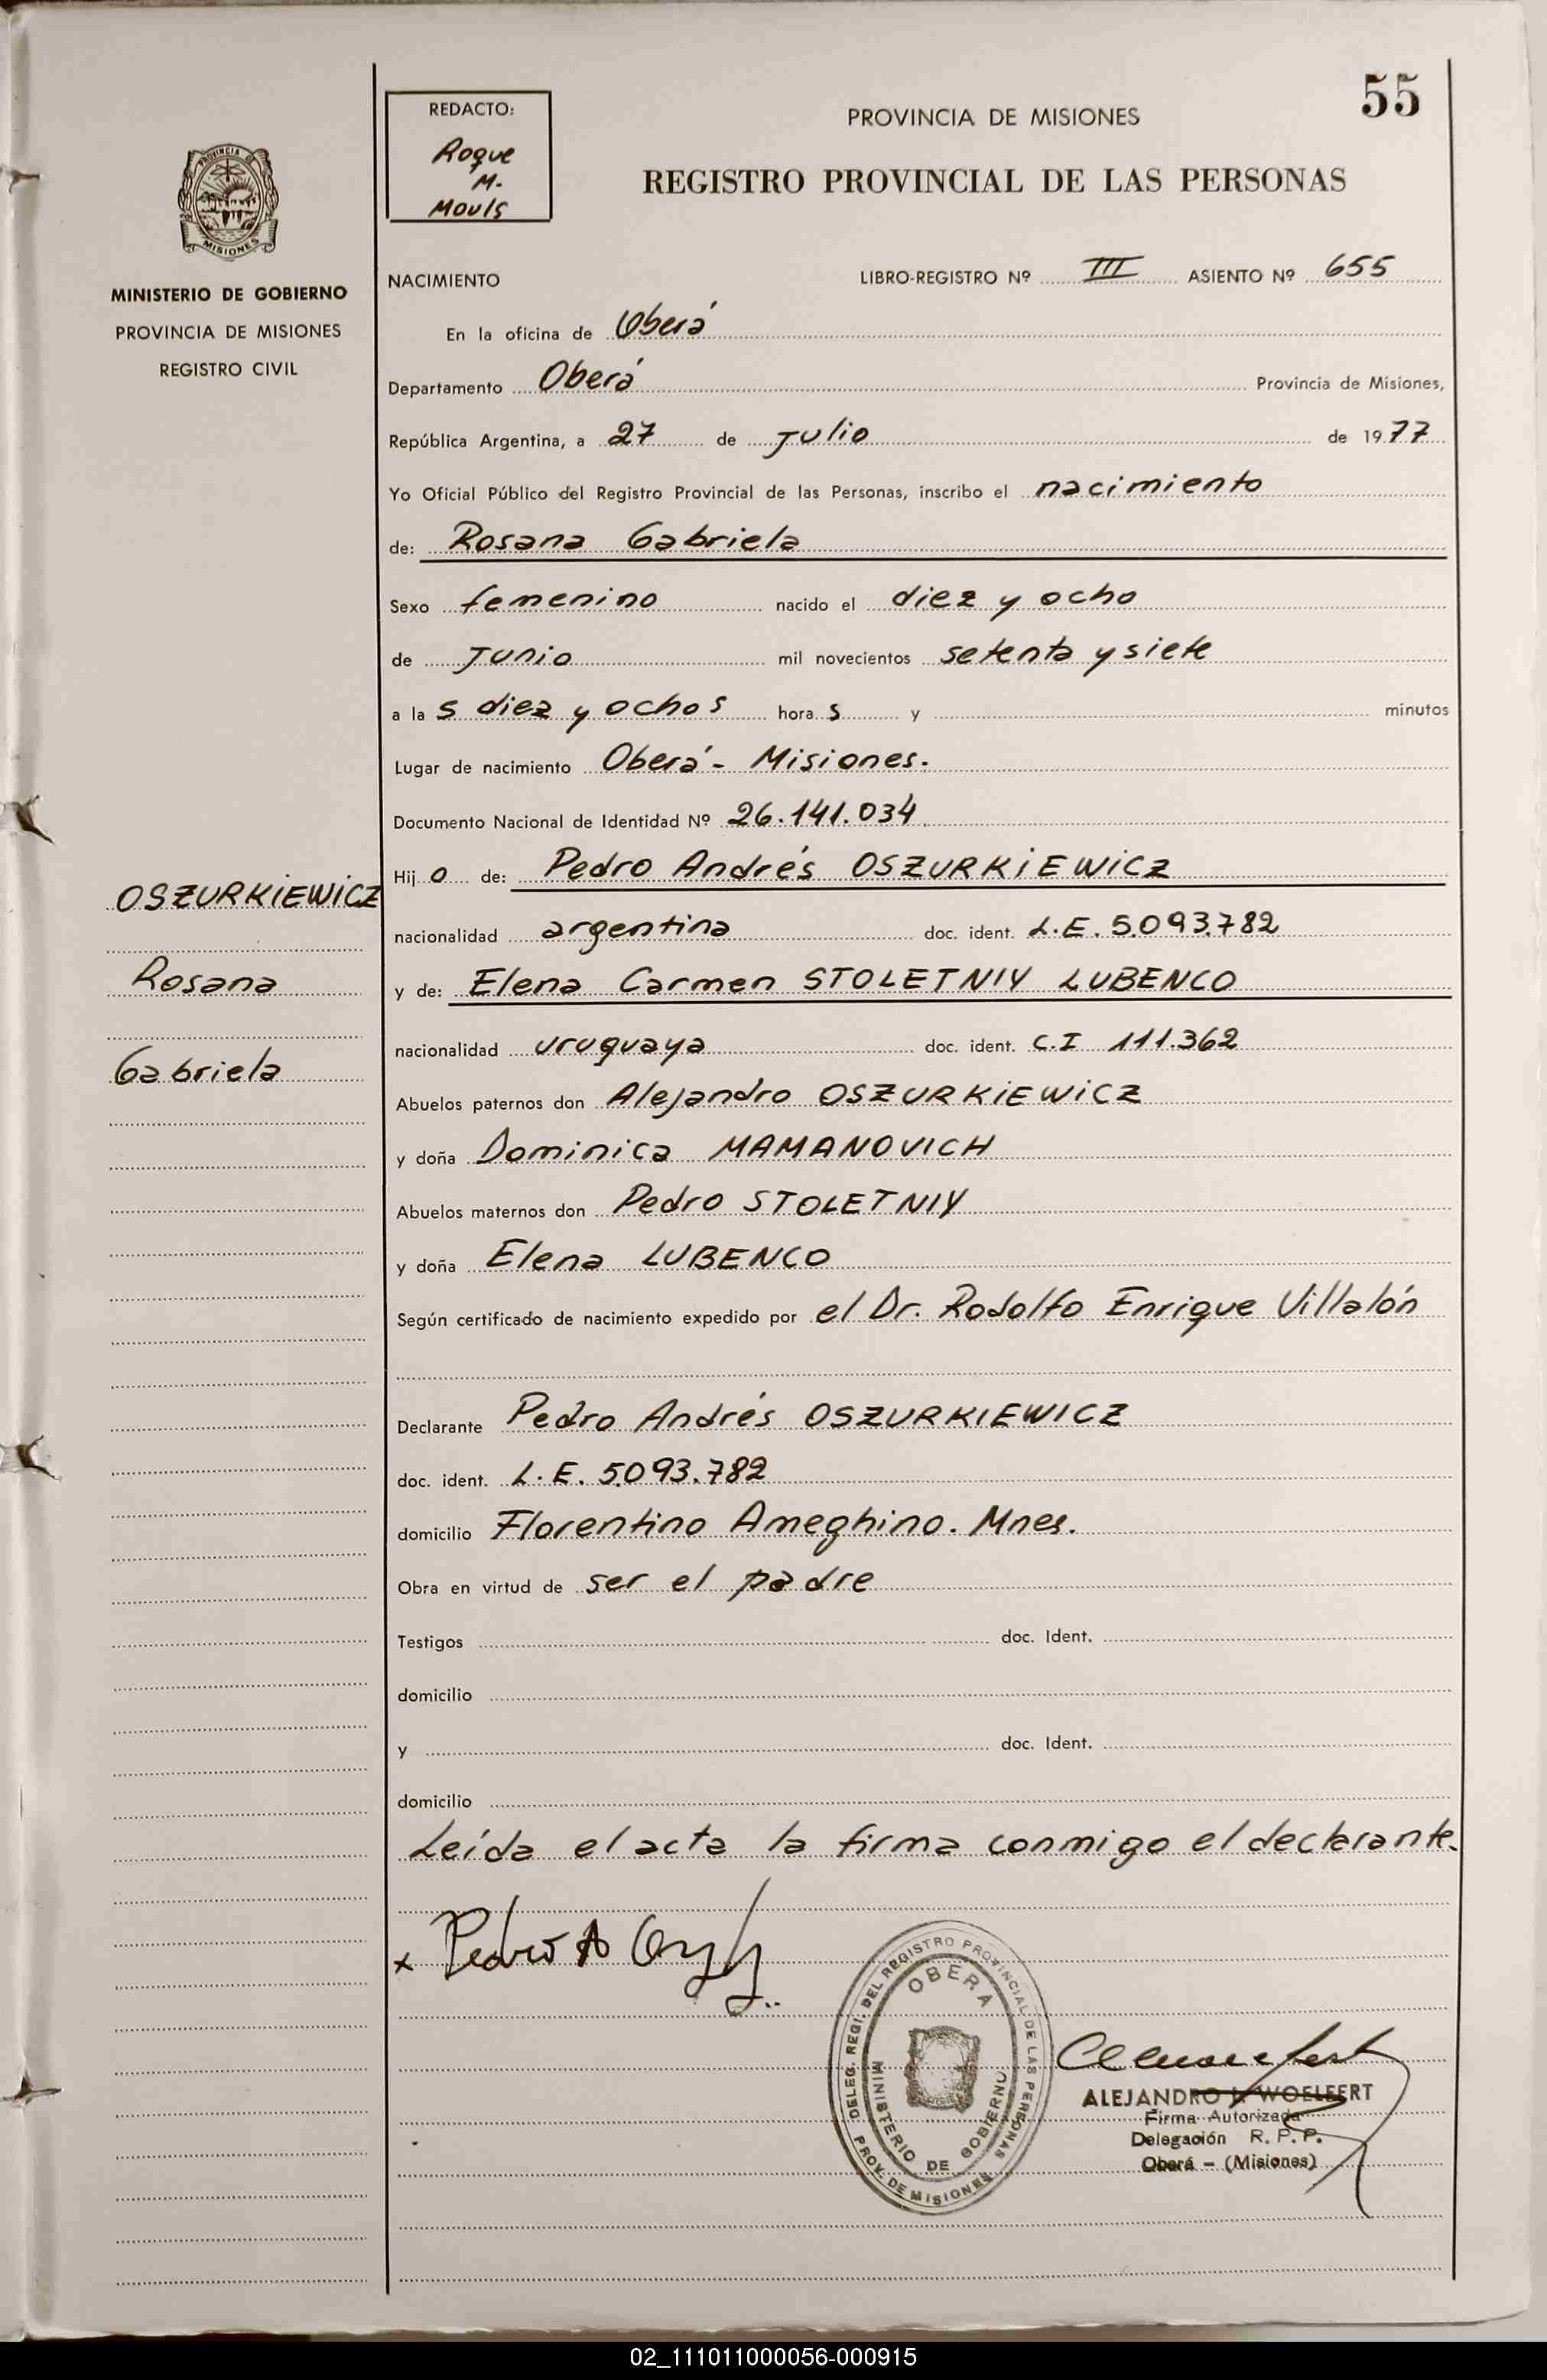 55
REDACTO:
Roque
M.
Mouls
PROVINCIA DE MISIONES
REGISTRO PROVINCIAL DE LAS PERSONAS
PROVINCIA DE
MISIONES
MINISTERIO DE GOBIERNO
PROVINCIA DE MISIONES
REGISTRO CIVIL
NACIMIENTO LIBRO-REGISTRO Nº III ASIENTO Nº 655
En la oficina de Oberá
Departamento Oberá Provincia de Misiones,
República Argentina, a 27 de Julio de 1977
Yo Oficial Público del Registro Provincial de las Personas, inscribo el nacimiento
de: Rosana Gabriela
Sexo femenino nacido el diez y ocho
de Junio mil novecientos setenta y siete
a las diez y ochos horas y minutos
Lugar de nacimiento Oberá - Misiones.
Documento Nacional de Identidad Nº 26.141.034
Hijo de: Pedro Andrés OSZURKiEWiCZ
OSZURKiEWiCZ
nacionalidad argentina doc. ident. L.E. 5.093.782
Rosana
y de: Elena Carmen STOLETNIY LUBENCO
nacionalidad uruguaya doc. ident. C.I 111.362
Gabriela
Abuelos paternos don Alejandro OSZURKiEWiCZ
y doña Dominica MAMANOVICH
Abuelos maternos don Pedro STOLETNIY
y doña Elena LUBENCO
Según certificado de nacimiento expedido por el Dr. Rodolfo Enrique Villalón
Declarante Pedro Andrés OSZURKIEWICZ
doc. ident. L.E. 5.093.782
domicilio Florentino Ameghino. Mnes.
Obra en virtud de ser el padre
Testigos doc. Ident.
domicilio
y doc. Ident.
domicilio
Leída el acta la firma conmigo el declarante.
x Pedro A
DELEG. REGI. DEL REGISTRO PROVINCIAL DE LAS PERSONAS
PROV. DE MISIONES
OBERA
MINISTERIO DE GOBIERNO
ALEJANDRO L. WOELFERT
Firma Autorizada
Delegación R. P. P.
Oberá - (Misiones)
02_111011000056-000915